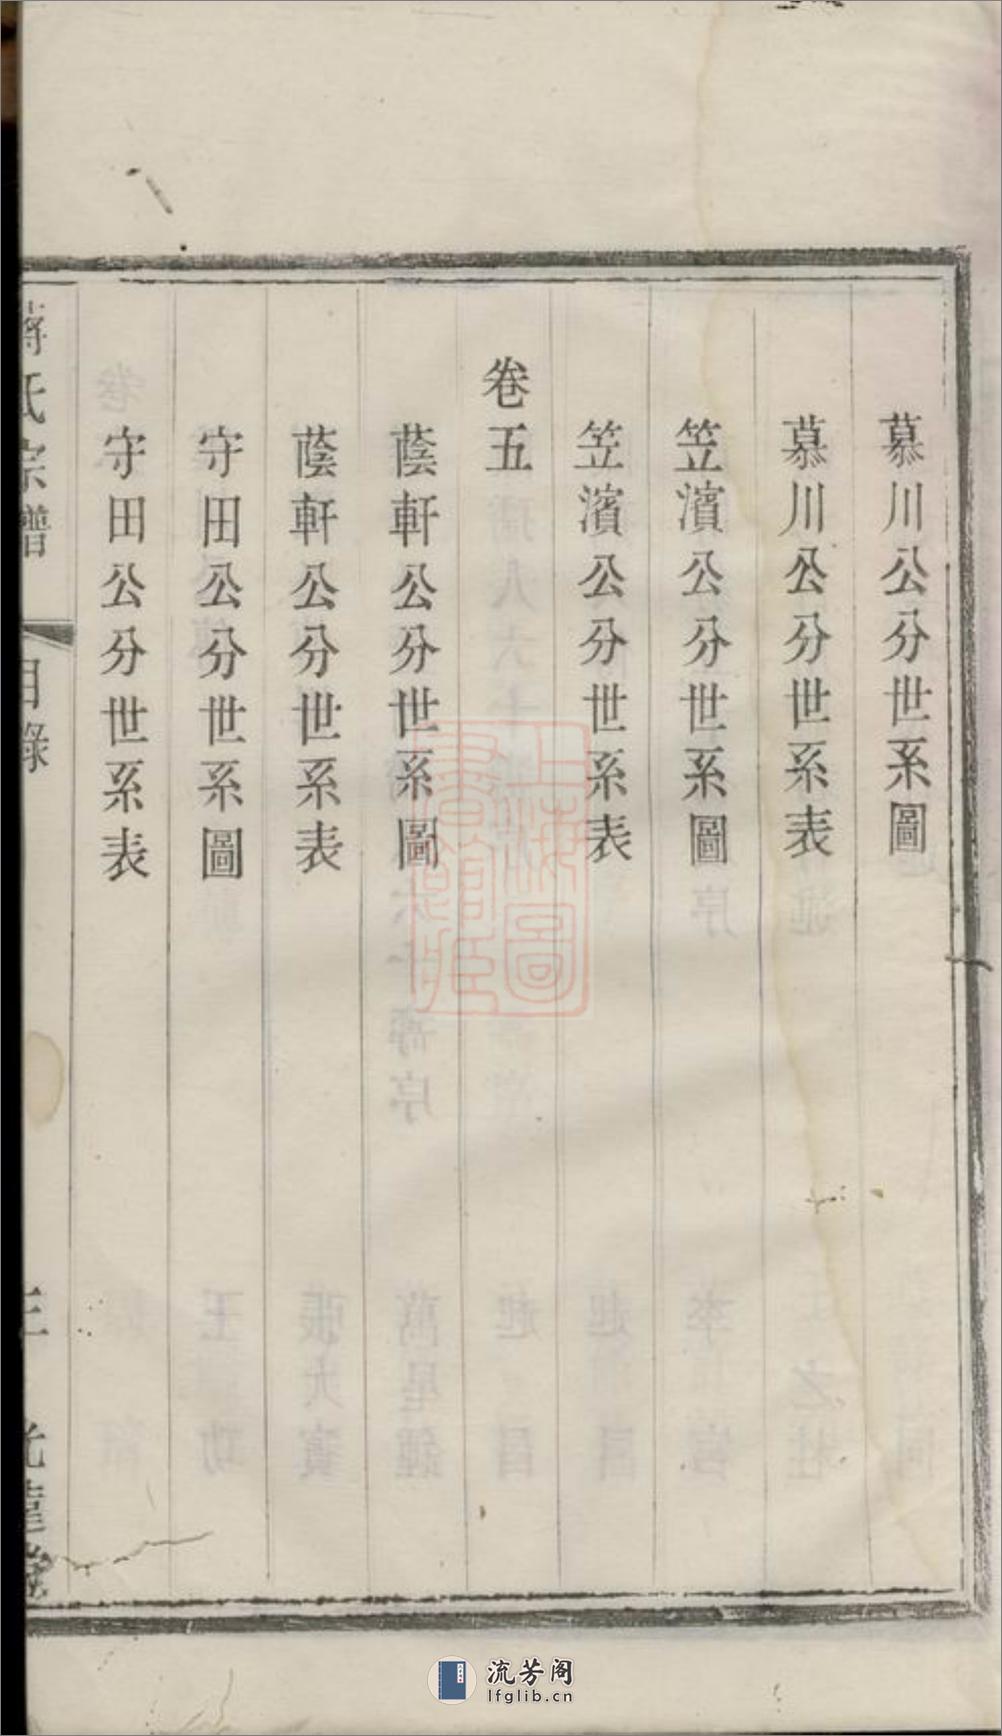 慕川公分世系圖
慕川公分世系表
笠濱公分世系圖
笠濱公分世系表
卷五
蔭軒公分世系圖
蔭軒公分世系表
守田公分世系圖
守田公分世系表
蔣氏宗譜
目錄
三
上海圖
書館藏
流芳阁
lfglib.cn